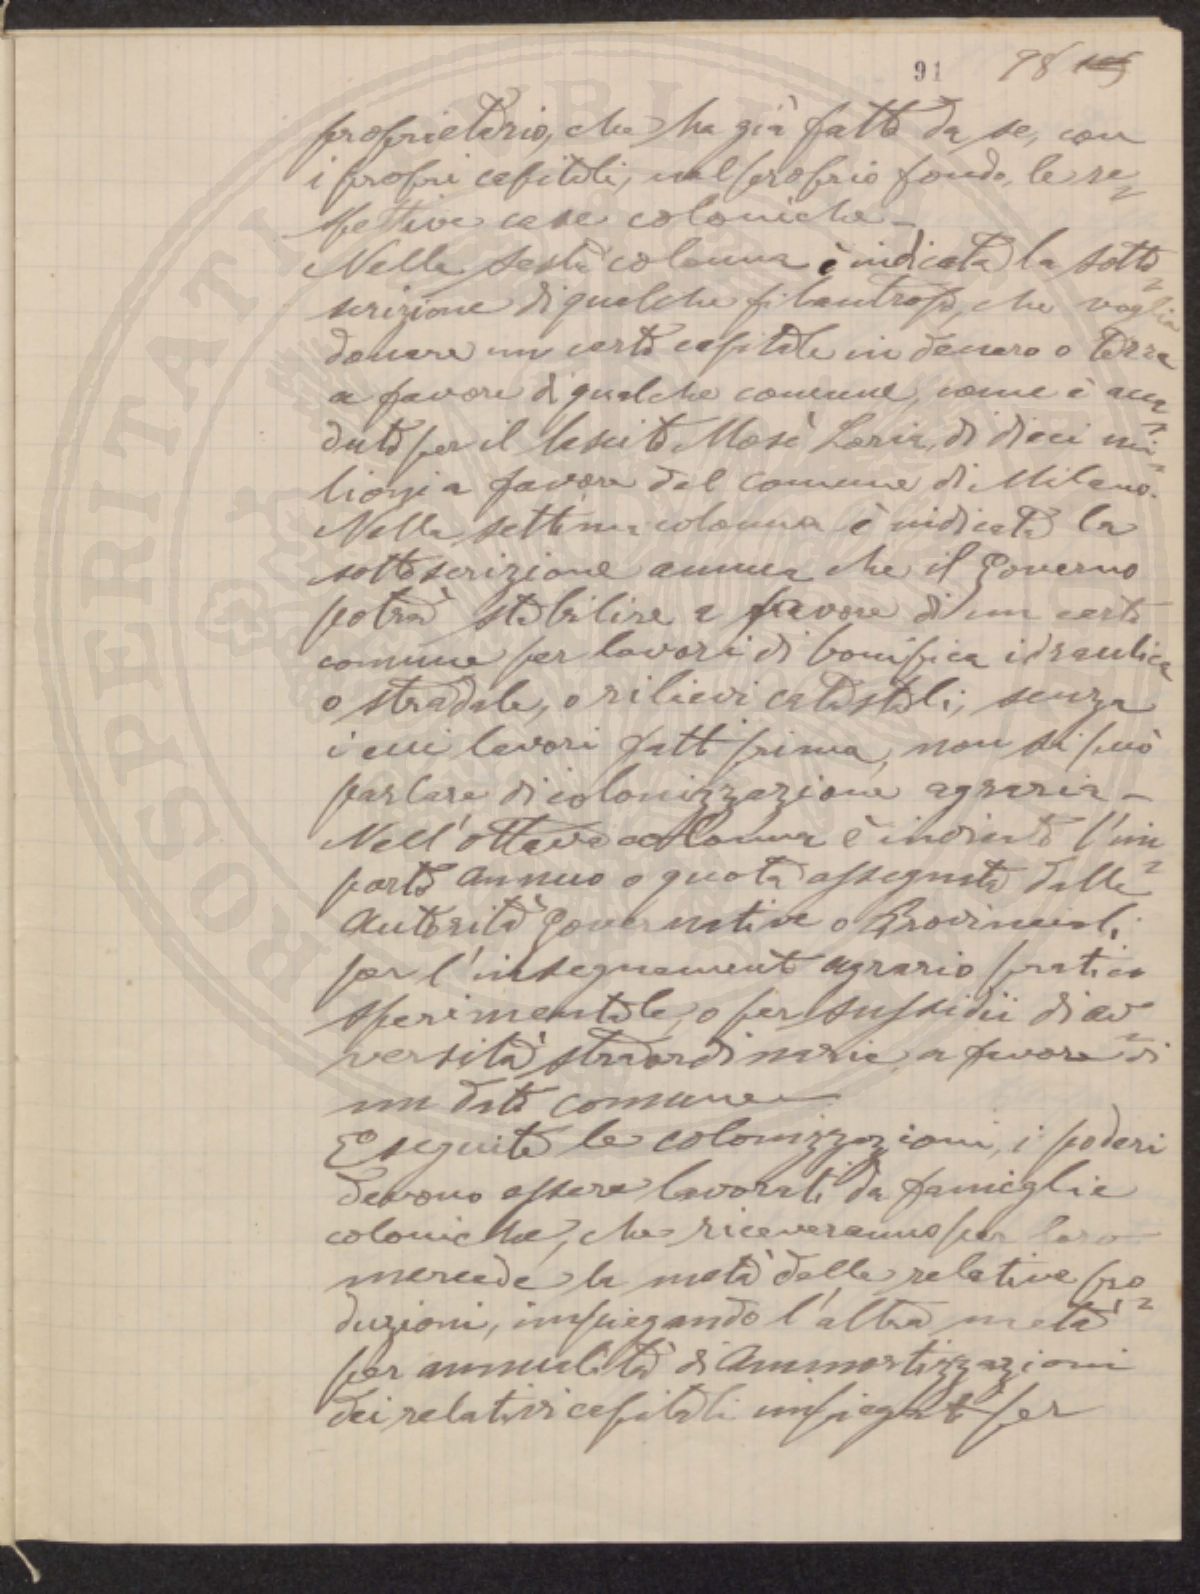 91 98
proprietario, che ha già fatto da se, con
i propri capitali, nel proprio fondo, le re=
spettive case coloniche –
Nella sesta colonna è indicata la sotto=
scrizione di qualche filantropo, che voglia
donare un certo capitale in denaro o terra
a favore di qualche comune, come è acca=
duto per il lascito Mosè Loria, di dieci mi=
lioni a favore del comune di Milano.
Nella settima colonna è indicata la
sottoscrizione annua che il Governo
potrà stabilire a favore di un certo
comune per lavori di bonifica idraulica
o stradale, o rilievi catastali, senza
i cui lavori fatti prima, non si può
parlare di colonizzazione agraria –
Nell'ottava colonna è indicato l'im=
porto annuo o quota assegnata dalle
Autorità Governative o Provinciali
per l'insegnamento agrario pratico
sperimentale, o per sussidii di av=
versità straordinarie, a favore di
un dato comune –
Eseguite le colonizzazioni, i poderi
devono essere lavorati da famiglie
coloniche, che riceveranno per loro
mercede la metà delle relative pro=
duzioni, impiegando l'altra metà
per annualità di ammortizzazioni
dei relativi capitali impiegati per
PROSPERITATI